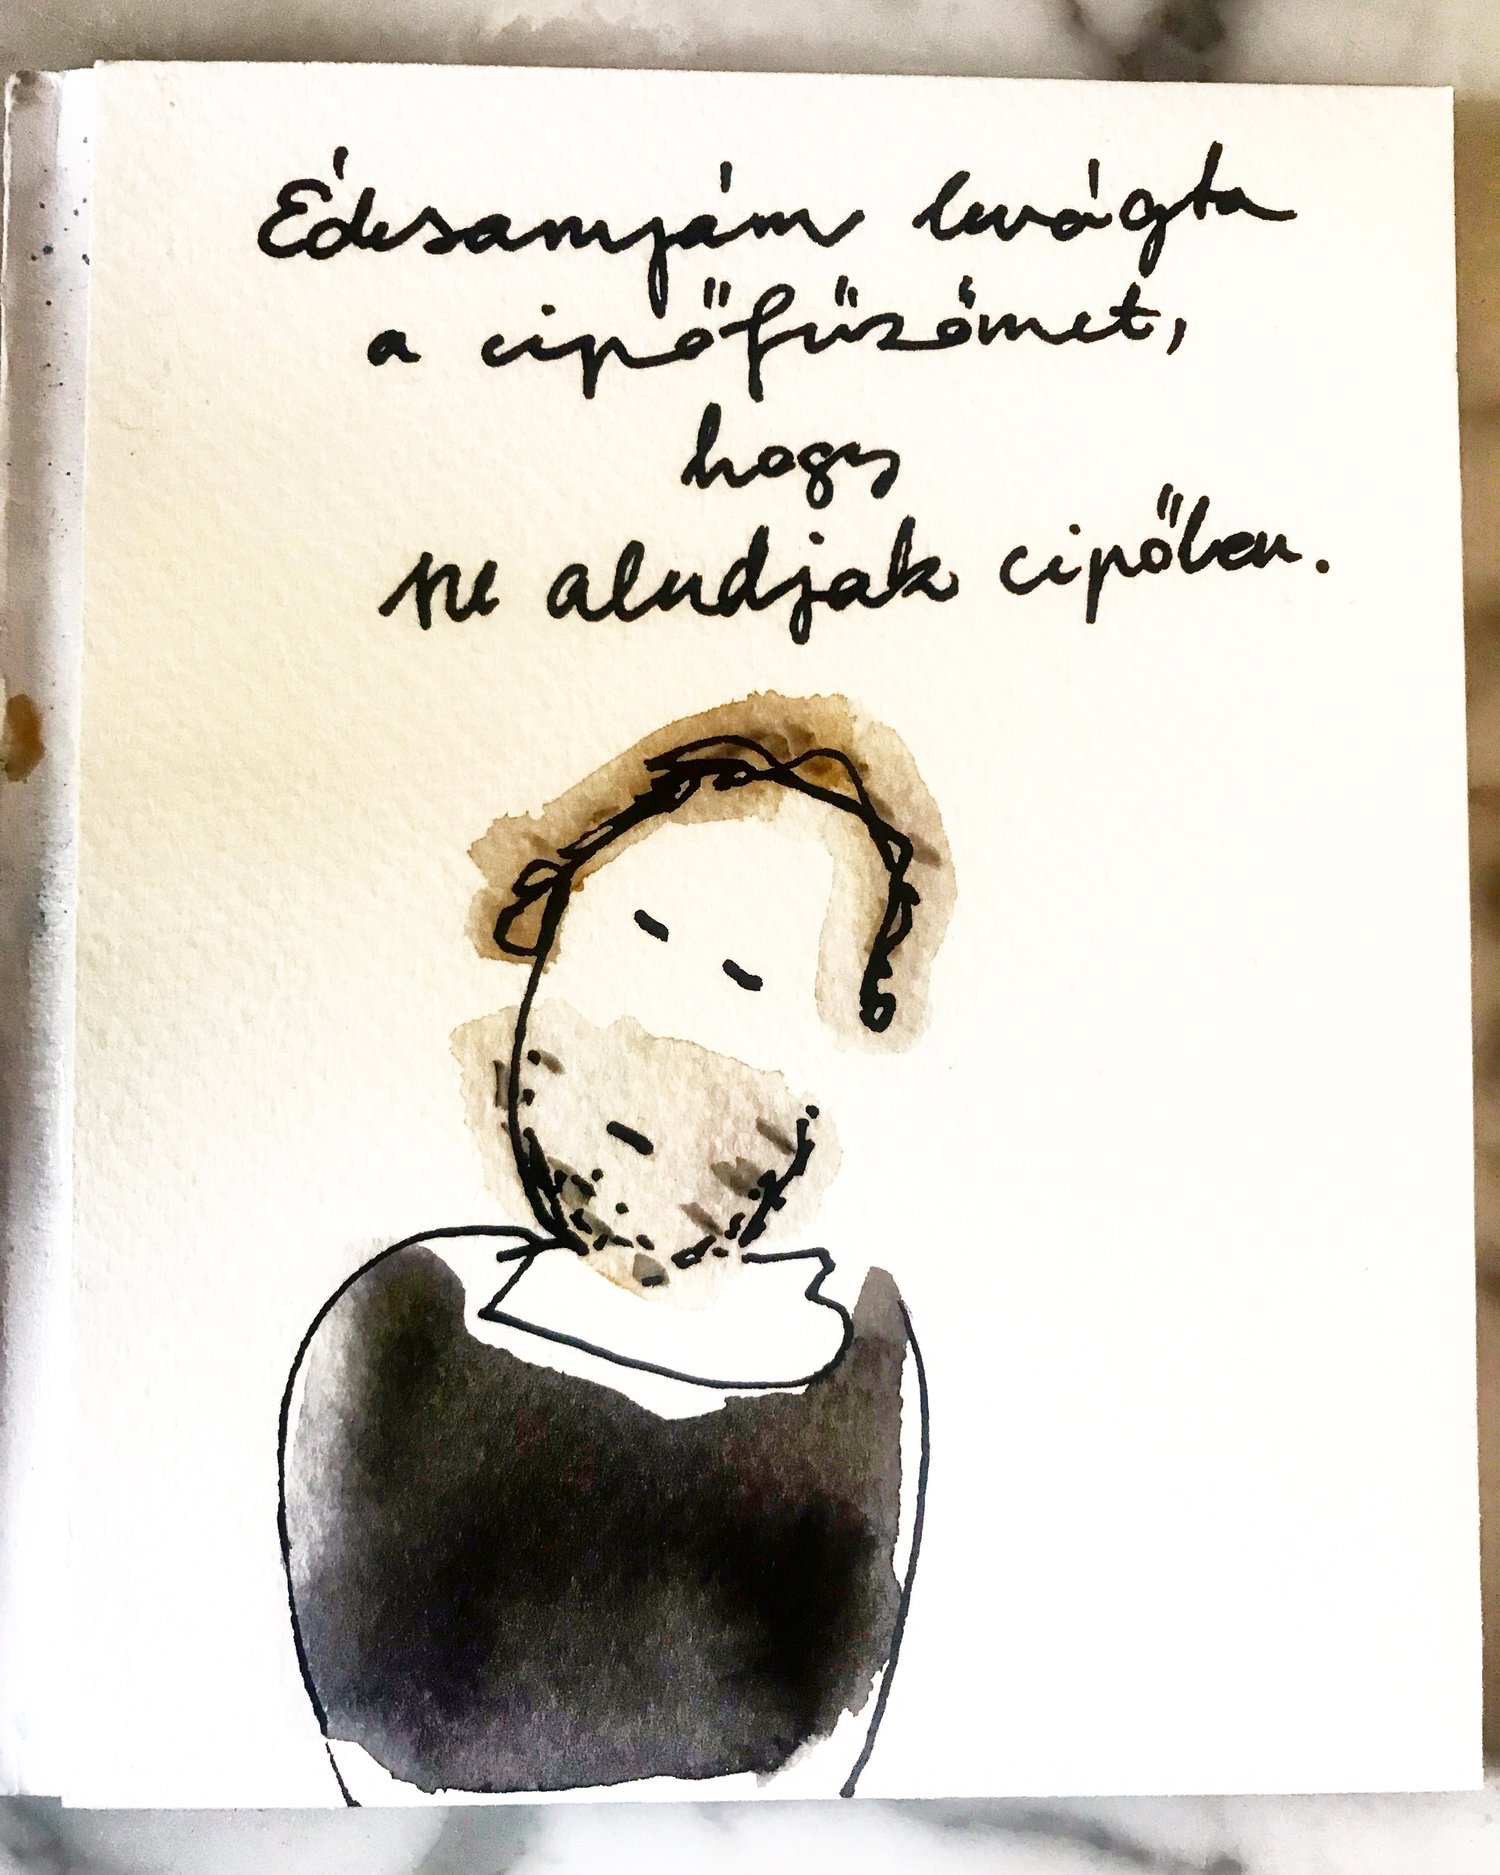 Édesanyám levágta
a cipőfűzőmet,
hogy
ne aludjak cipőben.